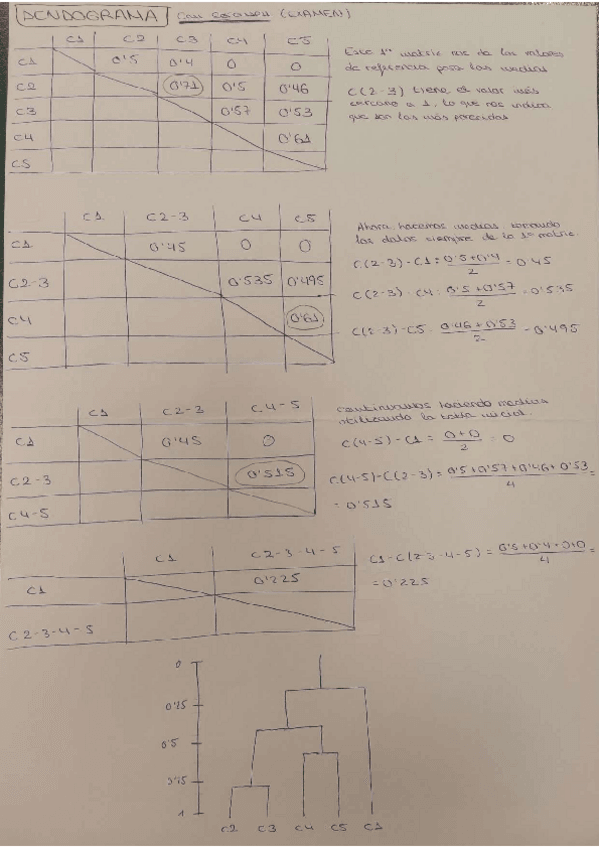 DENDOGRAMA (EXAMEN)
C1 C2 C3 C4 C5
C1 0'5 0'4 0 0
C2 0'71 0'5 0'46
C3 0'57 0'53
C4 0'61
C5
Esta 1ª matriz me da los valores
de referencia para las medias
C(2-3) tiene el valor más
cercano a 1, lo que nos indica
que son las más parecidas
C1 C2-3 C4 C5
C1 0'45 0 0
C2-3 0'535 0'495
C4 0'61
C5
Ahora hacemos medias, tomando
los datos siempre de la 1ª matriz.
C(2-3)-C1 = 0'5+0'4 / 2 = 0'45
C(2-3)-C4 = 0'5+0'57 / 2 = 0'535
C(2-3)-C5 = 0'46+0'53 / 2 = 0'495
C1 C2-3 C4-5
C1 0'45 0
C2-3 0'515
C4-5
Continuamos haciendo medias
utilizando la tabla inicial.
C(4-5)-C1 = 0+0 / 2 = 0
C(4-5)-C(2-3) = 0'5+0'57+0'46+0'53 / 4 =
= 0'515
C1 C2-3-4-5
C1 0'225
C2-3-4-5
C1-C(2-3-4-5) = 0'5+0'4+0+0 / 4 =
= 0'225
0
0'25
0'5
0'75
1
C2 C3 C4 C5 C1